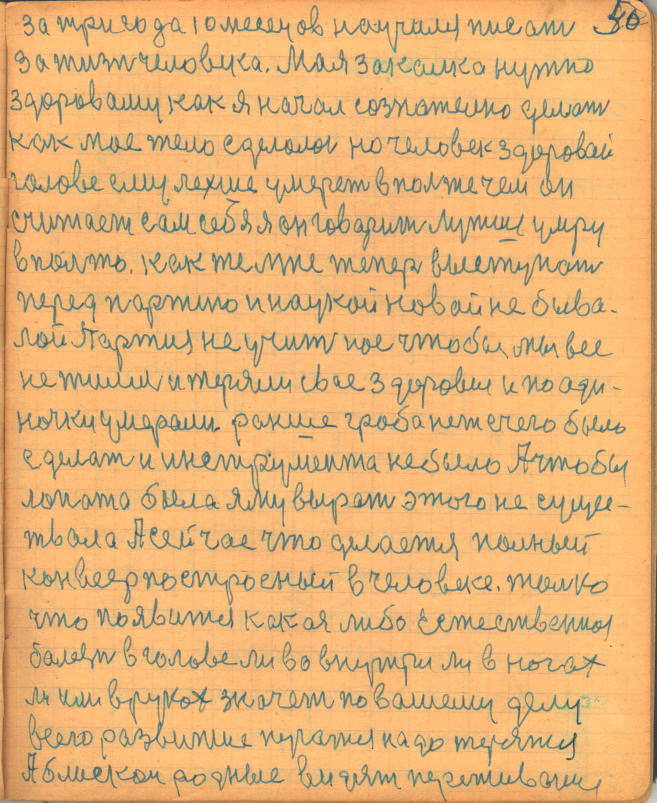 50
за три года 10 месецов научился писат
за жизн человика. Мая закалка нужно
здороваму как я начал сознателно делат
как мое тело сделолос но человек здоровай
голове ему лехше умерет в пол же чем он
считает сам себя я он говарит лутше умру
в полто. как же мне тепер выступат
перед партию и наукой новой не быва-
лой Партия не учит нас чтобы мы все
не жили и теряли свое здоровья и по ади-
ночки умерали. раньше гроба не с чего было
сделат и инструмента не было А чтобы
лопата была яму вырат этого не суще-
твала А сейчас что делается полный
конвеер построеный в человеке. толко
что появится какая либо Естественная
балезн в голове ли во внутри ли в ногах
ли или в руках значет по вашему делу
всего развитие пугатся надо терятся
А блиские родные видят переживание